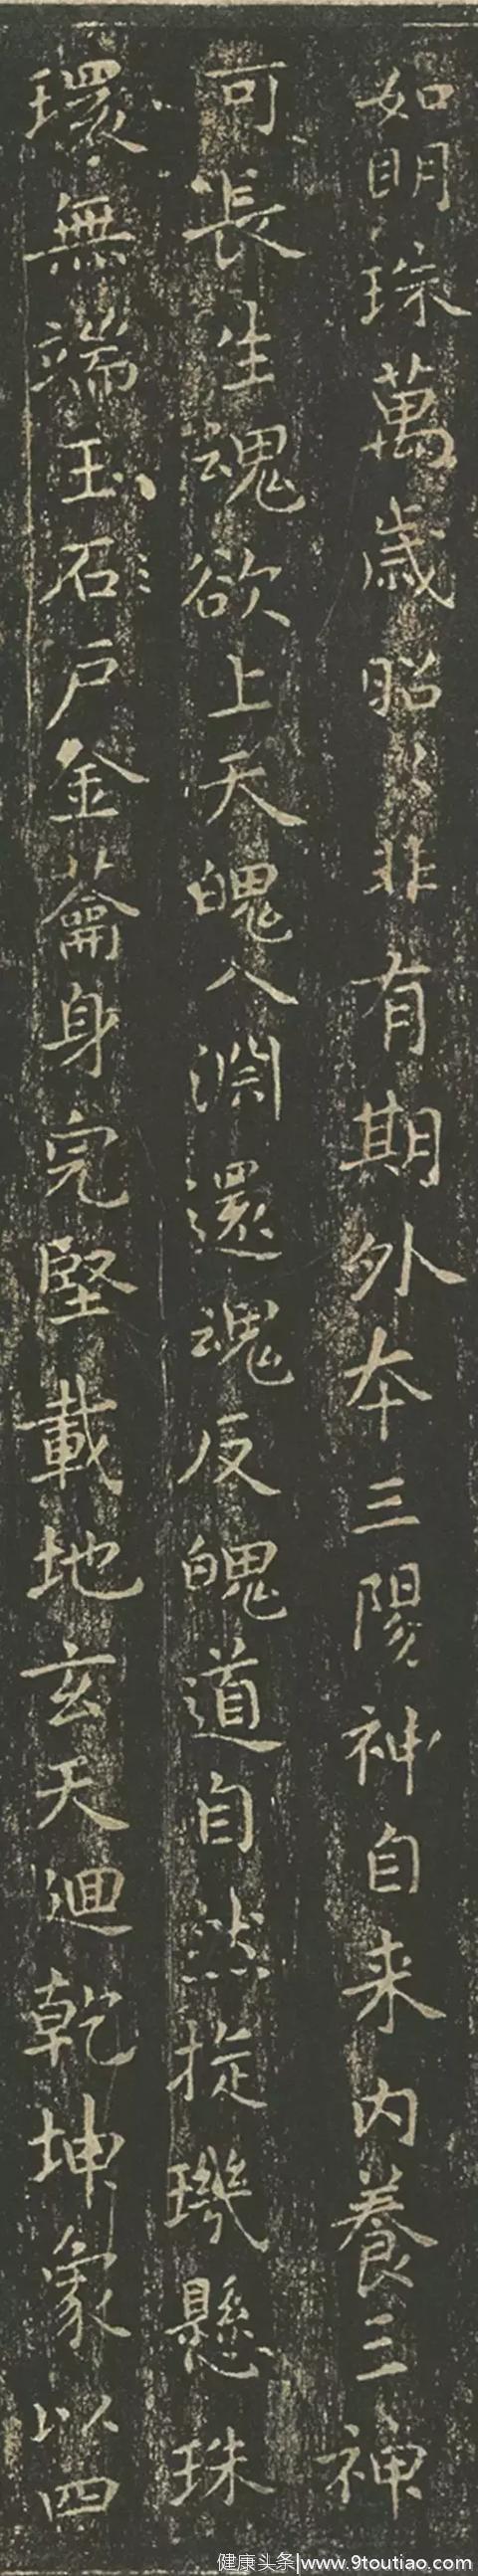 如明珠萬歲昭〻非有期外本三陽神自来内養三神
可長生魂欲上天魄入淵還魂反魄道自然旋璣懸珠
環無端玉石戶金籥身完堅載地玄天迴乾坤象以四
健康头条|www.9toutiao.com